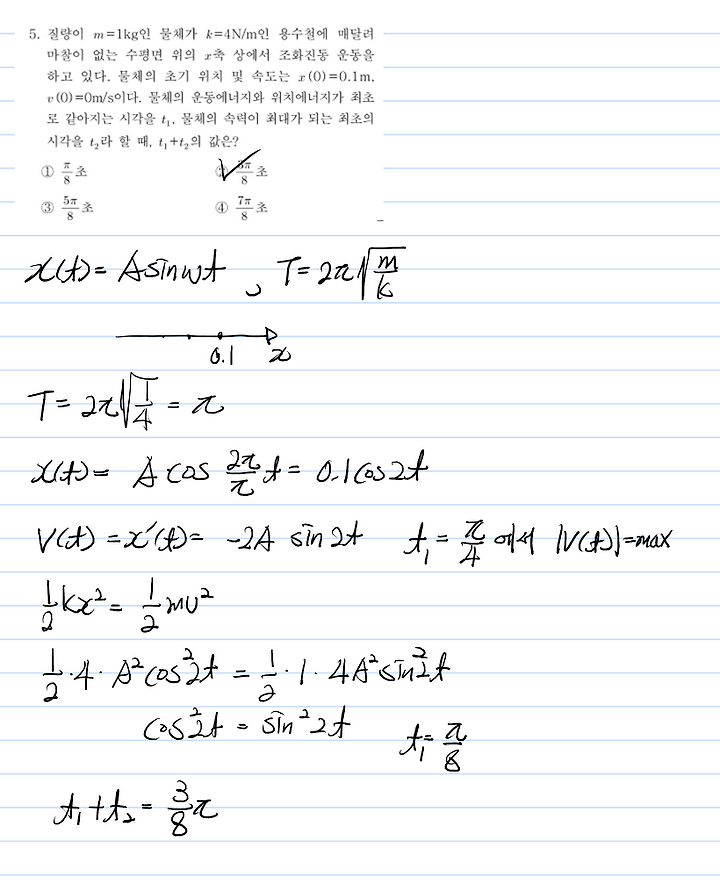 5. 질량이 m=1kg인 물체가 k=4N/m인 용수철에 매달려
마찰이 없는 수평면 위의 x축 상에서 조화진동 운동을
하고 있다. 물체의 초기 위치 및 속도는 x(0)=0.1m,
v(0)=0m/s이다. 물체의 운동에너지와 위치에너지가 최초
로 같아지는 시각을 t₁, 물체의 속력이 최대가 되는 최초의
시각을 t₂라 할 때, t₁+t₂의 값은?
① π/8 초 ② 3π/8 초
③ 5π/8 초 ④ 7π/8 초
x(t)= A sin wt , T= 2π√(m/k)
0.1 x
T= 2π√(1/4) = π
x(t)= A cos 2π/π t = 0.1 cos 2t
V(t) = x'(t)= -2A sin 2t t₁ = π/4 에서 |V(t)|=max
1/2 kx² = 1/2 mv²
1/2 · 4 · A² cos² 2t = 1/2 · 1 · 4A² sin² 2t
cos² 2t = sin² 2t t₁= π/8
t₁+t₂ = 3/8 π